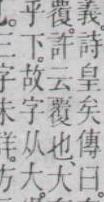 義。詩皇矣傳曰。
覆。許云覆也。大
乎下。故字从大。
三字未詳。方